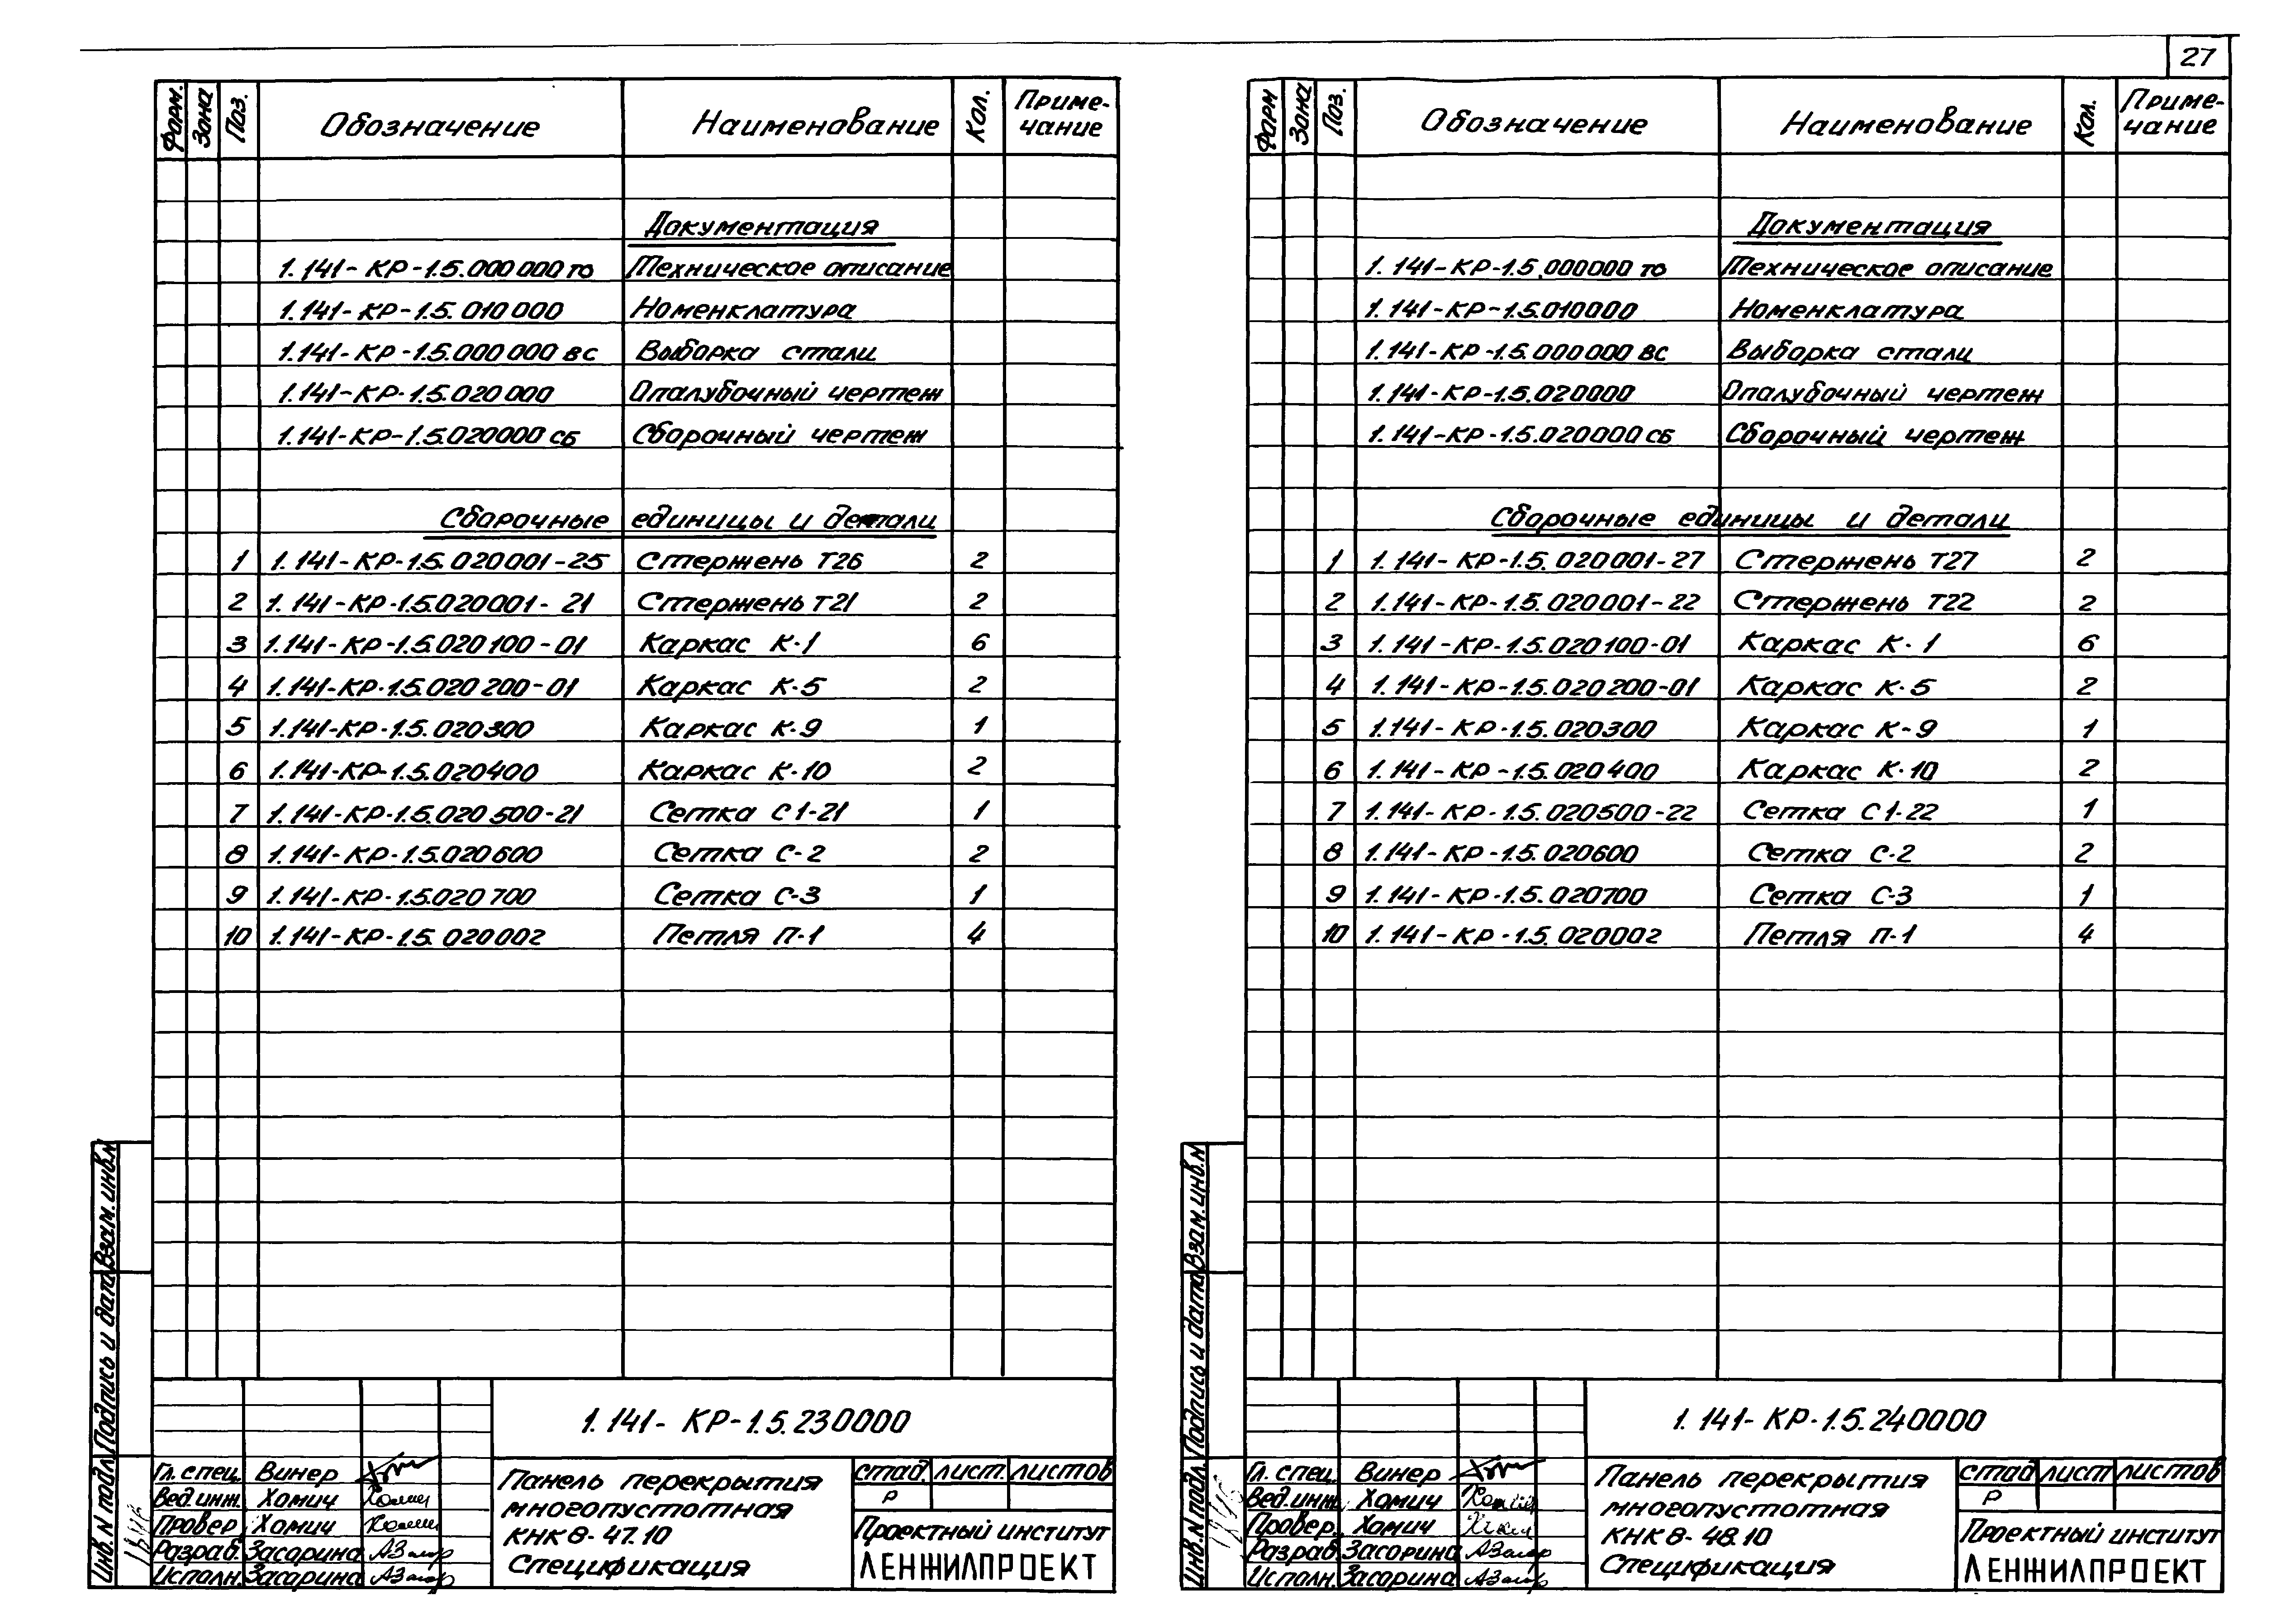 27
Форм. Зона Поз. Обозначение Наименование Кол. Приме-
чание
Документация
1.141-КР-1.5.000000 то Техническое описание
1.141-КР-1.5.010000 Номенклатура
1.141-КР-1.5.000000 вс Выборка стали
1.141-КР-1.5.020000 Опалубочный чертеж
1.141-КР-1.5.020000 сб Сборочный чертеж
Сборочные единицы и детали
1 1.141-КР-1.5.020001-25 Стержень Т26 2
2 1.141-КР-1.5.020001-21 Стержень Т21 2
3 1.141-КР-1.5.020100-01 Каркас К-1 6
4 1.141-КР-1.5.020200-01 Каркас К-5 2
5 1.141-КР-1.5.020300 Каркас К-9 1
6 1.141-КР-1.5.020400 Каркас К-10 2
7 1.141-КР-1.5.020500-21 Сетка С1-21 1
8 1.141-КР-1.5.020600 Сетка С-2 2
9 1.141-КР-1.5.020700 Сетка С-3 1
10 1.141-КР-1.5.020002 Петля П-1 4
Инв. N подл. Подпись и дата Взам. инв. N
1.141-КР-1.5.230000
Гл. спец. Винер
Вед. инж. Хомич
Провер. Хомич
Разраб. Засорина
Исполн. Засорина
Панель перекрытия
многопустотная
КНК 8-47.10
Спецификация
стад. лист. листов
Р
Проектный институт
ЛЕНЖИЛПРОЕКТ
Форм Зона Поз. Обозначение Наименование Кол. Приме-
чание
Документация
1.141-КР-1.5.000000 то Техническое описание
1.141-КР-1.5.010000 Номенклатура
1.141-КР-1.5.000000 ВС Выборка стали
1.141-КР-1.5.020000 Опалубочный чертеж
1.141-КР-1.5.020000 сб Сборочный чертеж
Сборочные единицы и детали
1 1.141-КР-1.5.020001-27 Стержень Т27 2
2 1.141-КР-1.5.020001-22 Стержень Т22 2
3 1.141-КР-1.5.020100-01 Каркас К-1 6
4 1.141-КР-1.5.020200-01 Каркас К-5 2
5 1.141-КР-1.5.020300 Каркас К-9 1
6 1.141-КР-1.5.020400 Каркас К-10 2
7 1.141-КР-1.5.020500-22 Сетка С1-22 1
8 1.141-КР-1.5.020600 Сетка С-2 2
9 1.141-КР-1.5.020700 Сетка С-3 1
10 1.141-КР-1.5.020002 Петля П-1 4
Инв. N подл. Подпись и дата Взам. инв. N
1.141-КР-1.5.240000
Гл. спец. Винер
Вед. инж. Хомич
Провер. Хомич
Разраб. Засорина
Исполн. Засорина
Панель перекрытия
многопустотная
КНК 8-48.10
Спецификация
стад лист листов
Р
Проектный институт
ЛЕНЖИЛПРОЕКТ